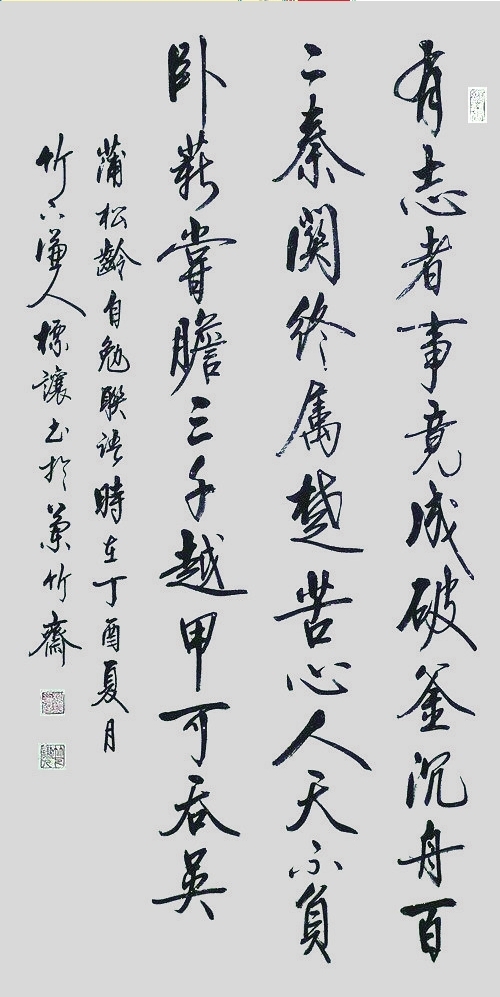 有志者事竟成破釜沉舟百
二秦關終属楚苦心人天不負
卧薪嘗膽三千越甲可吞吳
蒲松齡自勉聯語時在丁酉夏月
竹下谦人標讓书於蘭竹齋